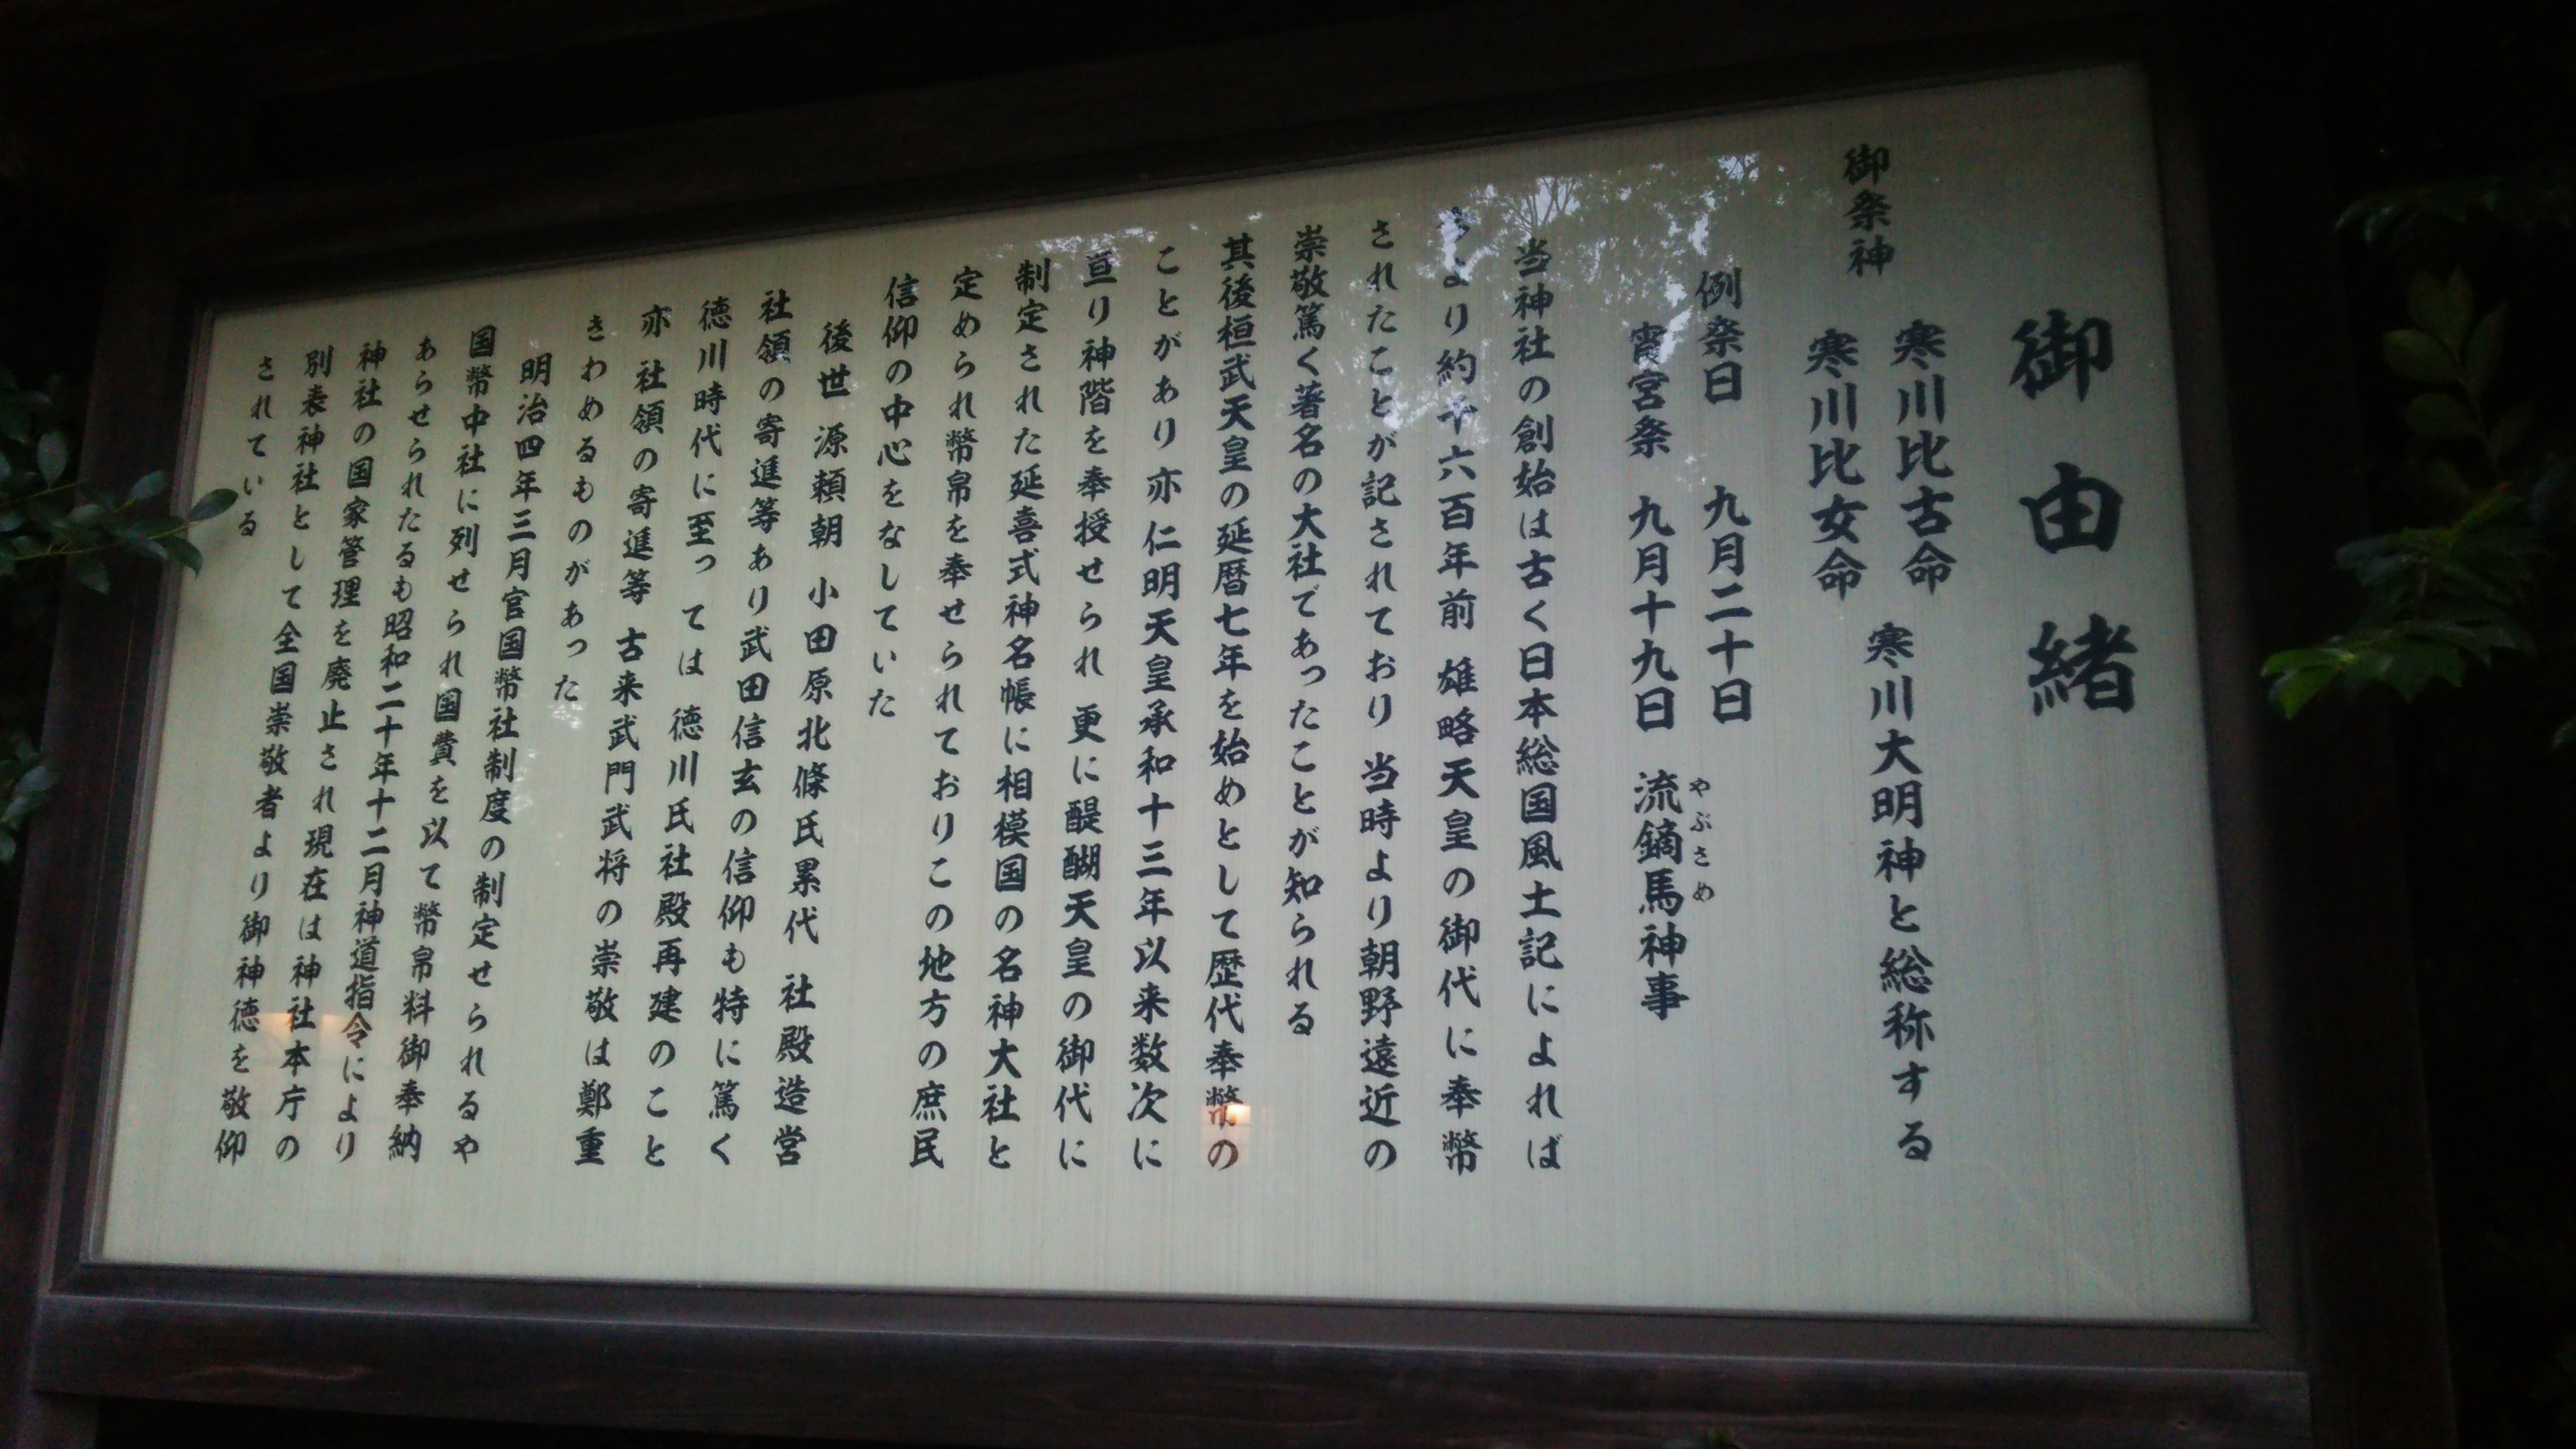 御由緒
御祭神 寒川比古命
寒川比女命
寒川大明神と総称する
例祭日 九月二十日
宵宮祭 九月十九日 流鏑馬神事
やぶさめ
当神社の創始は古く日本総国風土記によれば
今より約千六百年前 雄略天皇の御代に奉幣
されたことが記されており 当時より朝野遠近の
崇敬篤く著名の大社であったことが知られる
其後桓武天皇の延暦七年を始めとして歴代奉幣の
ことがあり亦仁明天皇承和十三年以来数次に
亘り神階を奉授せられ 更に醍醐天皇の御代に
制定された延喜式神名帳に相模国の名神大社と
定められ幣帛を奉せられておりこの地方の庶民
信仰の中心をなしていた
後世 源頼朝 小田原北條氏累代 社殿造営
社領の寄進等あり武田信玄の信仰も特に篤く
徳川時代に至っては 徳川氏社殿再建のこと
亦 社領の寄進等 古来武門武将の崇敬は鄭重
きわめるものがあった
明治四年三月官国幣社制度の制定せられるや
国幣中社に列せられ国費を以て幣帛料御奉納
あらせられたるも昭和二十年十二月神道指令により
神社の国家管理を廃止され現在は神社本庁の
別表神社として全国崇敬者より御神徳を敬仰
されている